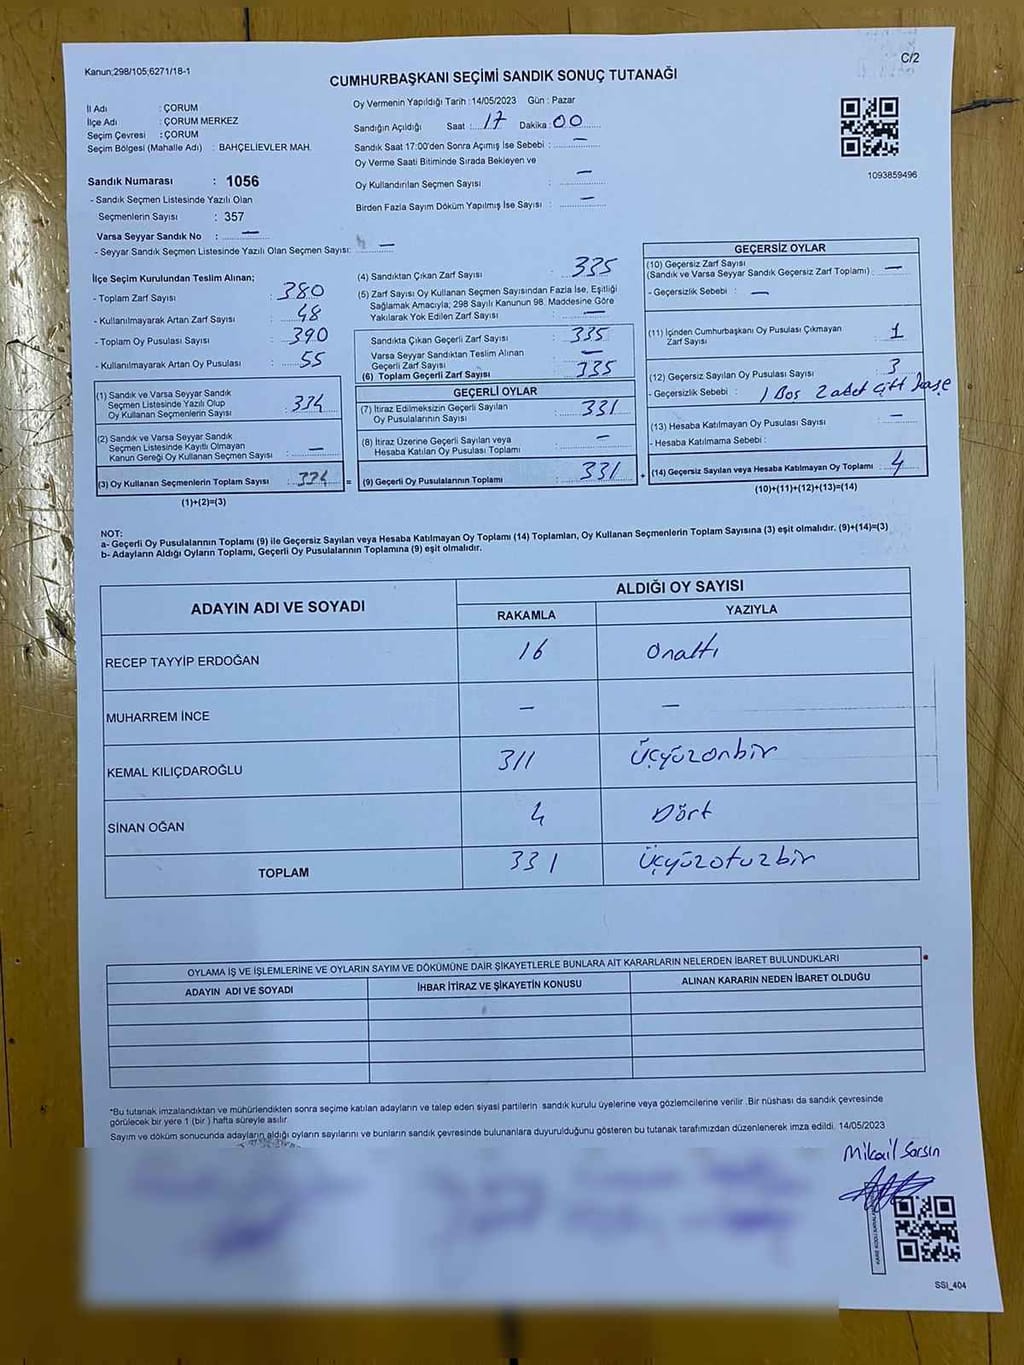 Kanun;298/105;6271/18-1
C/2
CUMHURBAŞKANI SEÇİMİ SANDIK SONUÇ TUTANAĞI
İl Adı : ÇORUM
İlçe Adı : ÇORUM MERKEZ
Seçim Çevresi : ÇORUM
Seçim Bölgesi (Mahalle Adı) : BAHÇELİEVLER MAH.
Sandık Numarası : 1056
- Sandık Seçmen Listesinde Yazılı Olan
Seçmenlerin Sayısı : 357
Varsa Seyyar Sandık No : —
- Seyyar Sandık Seçmen Listesinde Yazılı Olan Seçmen Sayısı: —
Oy Vermenin Yapıldığı Tarih :14/05/2023 Gün : Pazar
Sandığın Açıldığı Saat : 17 Dakika : 00
Sandık Saat 17:00'den Sonra Açmış İse Sebebi : —
Oy Verme Saati Bitiminde Sırada Bekleyen ve
Oy Kullandırılan Seçmen Sayısı : —
Birden Fazla Sayım Döküm Yapılmış İse Sayısı : —
1093859496
İlçe Seçim Kurulundan Teslim Alınan;
- Toplam Zarf Sayısı : 380
- Kullanılmayarak Artan Zarf Sayısı : 48
- Toplam Oy Pusulası Sayısı : 390
- Kullanılmayarak Artan Oy Pusulası : 55
(1) Sandık ve Varsa Seyyar Sandık
Seçmen Listesinde Yazılı Olup
Oy Kullanan Seçmenlerin Sayısı : 334
(2) Sandık ve Varsa Seyyar Sandık
Seçmen Listesinde Kayıtlı Olmayan
Kanun Gereği Oy Kullanan Seçmen Sayısı : —
(3) Oy Kullanan Seçmenlerin Toplam Sayısı : 334 =
(1)+(2)=(3)
(4) Sandıktan Çıkan Zarf Sayısı : 335
(5) Zarf Sayısı Oy Kullanan Seçmen Sayısından Fazla İse, Eşitliği
Sağlamak Amacıyla; 298 Sayılı Kanunun 98. Maddesine Göre
Yakılarak Yok Edilen Zarf Sayısı : —
Sandıkta Çıkan Geçerli Zarf Sayısı : 335
Varsa Seyyar Sandıktan Teslim Alınan
Geçerli Zarf Sayısı : —
(6) Toplam Geçerli Zarf Sayısı : 335
GEÇERLİ OYLAR
(7) İtiraz Edilmeksizin Geçerli Sayılan
Oy Pusulalarının Sayısı : 331
(8) İtiraz Üzerine Geçerli Sayılan veya
Hesaba Katılan Oy Pusulası Toplamı : —
(9) Geçerli Oy Pusulalarının Toplamı : 331 +
GEÇERSİZ OYLAR
(10) Geçersiz Zarf Sayısı
(Sandık ve Varsa Seyyar Sandık Geçersiz Zarf Toplamı) : —
- Geçersizlik Sebebi : —
(11) İçinden Cumhurbaşkanı Oy Pusulası Çıkmayan
Zarf Sayısı : 1
(12) Geçersiz Sayılan Oy Pusulası Sayısı : 3
- Geçersizlik Sebebi : 1 Boş 2 adet çift kaşe
(13) Hesaba Katılmayan Oy Pusulası Sayısı : —
- Hesaba Katılmama Sebebi :
(14) Geçersiz Sayılan veya Hesaba Katılmayan Oy Toplamı : 4
(10)+(11)+(12)+(13)=(14)
NOT:
a- Geçerli Oy Pusulalarının Toplamı (9) ile Geçersiz Sayılan veya Hesaba Katılmayan Oy Toplamı (14) Toplamları, Oy Kullanan Seçmenlerin Toplam Sayısına (3) eşit olmalıdır. (9)+(14)=(3)
b- Adayların Aldığı Oyların Toplamı, Geçerli Oy Pusulalarının Toplamına (9) eşit olmalıdır.
ADAYIN ADI VE SOYADI ALDIĞI OY SAYISI
RAKAMLA YAZIYLA
RECEP TAYYİP ERDOĞAN 16 Onaltı
MUHARREM İNCE — —
KEMAL KILIÇDAROĞLU 311 Üçyüzonbir
SİNAN OĞAN 4 Dört
TOPLAM 331 Üçyüzotuzbir
OYLAMA İŞ VE İŞLEMLERİNE VE OYLARIN SAYIM VE DÖKÜMÜNE DAİR ŞİKAYETLERLE BUNLARA AİT KARARLARIN NELERDEN İBARET BULUNDUKLARI
ADAYIN ADI VE SOYADI İHBAR İTİRAZ VE ŞİKAYETİN KONUSU ALINAN KARARIN NEDEN İBARET OLDUĞU
*Bu tutanak imzalandıktan ve mühürlendikten sonra seçime katılan adayların ve talep eden siyasi partilerin sandık kurulu üyelerine veya gözlemcilerine verilir .Bir nüshası da sandık çevresinde
görülecek bir yere 1 (bir ) hafta süreyle asılır.
Sayım ve döküm sonucunda adayların aldığı oyların sayılarını ve bunların sandık çevresinde bulunanlara duyurulduğunu gösteren bu tutanak tarafımızdan düzenlenerek imza edildi. 14/05/2023
Mikail Sarsın
SSI_404